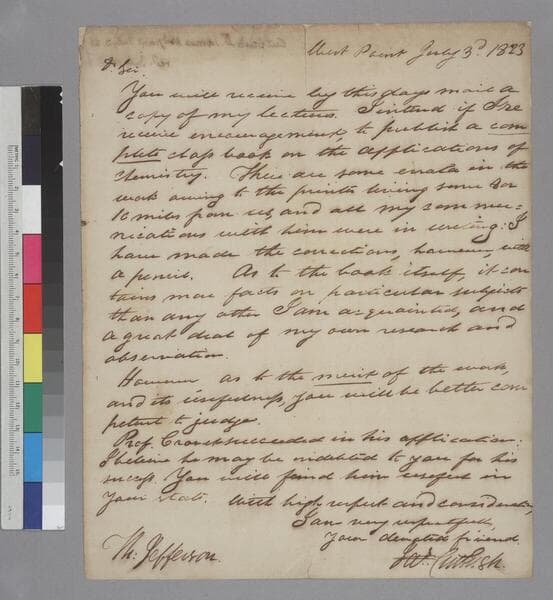 West Point July 3d 1823
Dr Sir.
You will receive by this days mail a
copy of my lectures. I intend if I re
receive encouragement, to publish a com
plete class book on the applications of
chemistry. There are some errata in the
work owing to the printer living some
10 miles from us, and all my commu-
nications with him were in writing: I
have made the corrections, however, with
a pencil. As to the book itself, it con
tains more facts on particular subjects
than any other I am acquainted, and
a great deal of my own research and
observation.
However as to the merit of the work,
and its usefulness, you will be better com
petent to judge.
Prof. succeeded in his application:
I believe he may be indebted to you for his
success. You will find him useful in
your state. With high respect and consideration,
I am very respectfully,
Your devoted friend
Th: Jefferson.
Jas. Cutbush.